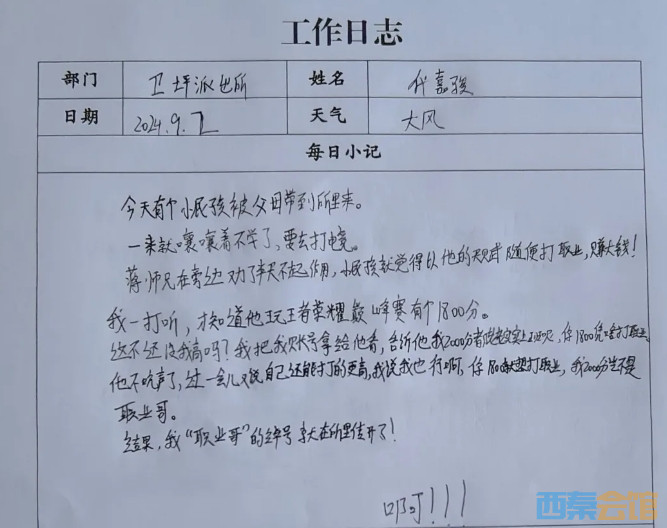 工作日志
部门 卫坪派出所 姓名 代嘉骏
日期 2024.9.2 天气 大风
每日小记
今天有个小屁孩被父母带到所里来。
一来就嚷嚷着不学了，要去打电竞。
蒋师兄在旁边劝了半天不起作用，小屁孩就觉得以他的天赋随便打职业，赚大钱！
我一打听，才知道他玩王者荣耀巅峰赛有个1800分。
这不还没我高吗？我把我账号拿给他看，告诉他我2000分者没上，你1800凭啥打职业，
他不吭声了，过一会儿又说自己还能打的更高，我说我也行啊，你1800就想打职业，我2000分岂不是
职业哥。
结果，我“职业哥”的绰号半天在所里传开了！
呵！！！
西秦会馆